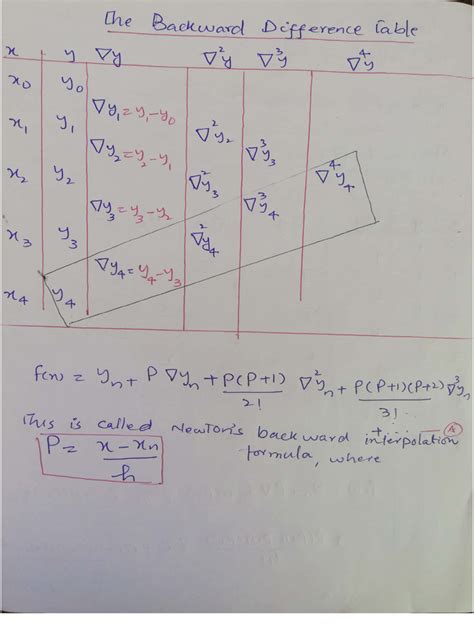 The Backward Difference Table
x y ∇y ∇²y ∇³y ∇⁴y
x₀ y₀
∇y₁ = y₁-y₀
x₁ y₁ ∇²y₂
∇y₂ = y₂-y₁ ∇³y₃
x₂ y₂ ∇²y₃ ∇⁴y₄
∇y₃ = y₃-y₂ ∇³y₄
x₃ y₃ ∇²y₄
∇y₄ = y₄-y₃
x₄ y₄
f(n) = yₙ + P ∇yₙ + P(P+1)/2! ∇²yₙ + P(P+1)(P+2)/3! ∇³yₙ
+ ... — (A)
This is called Newton's backward interpolation
formula, where
P = x-xₙ/h